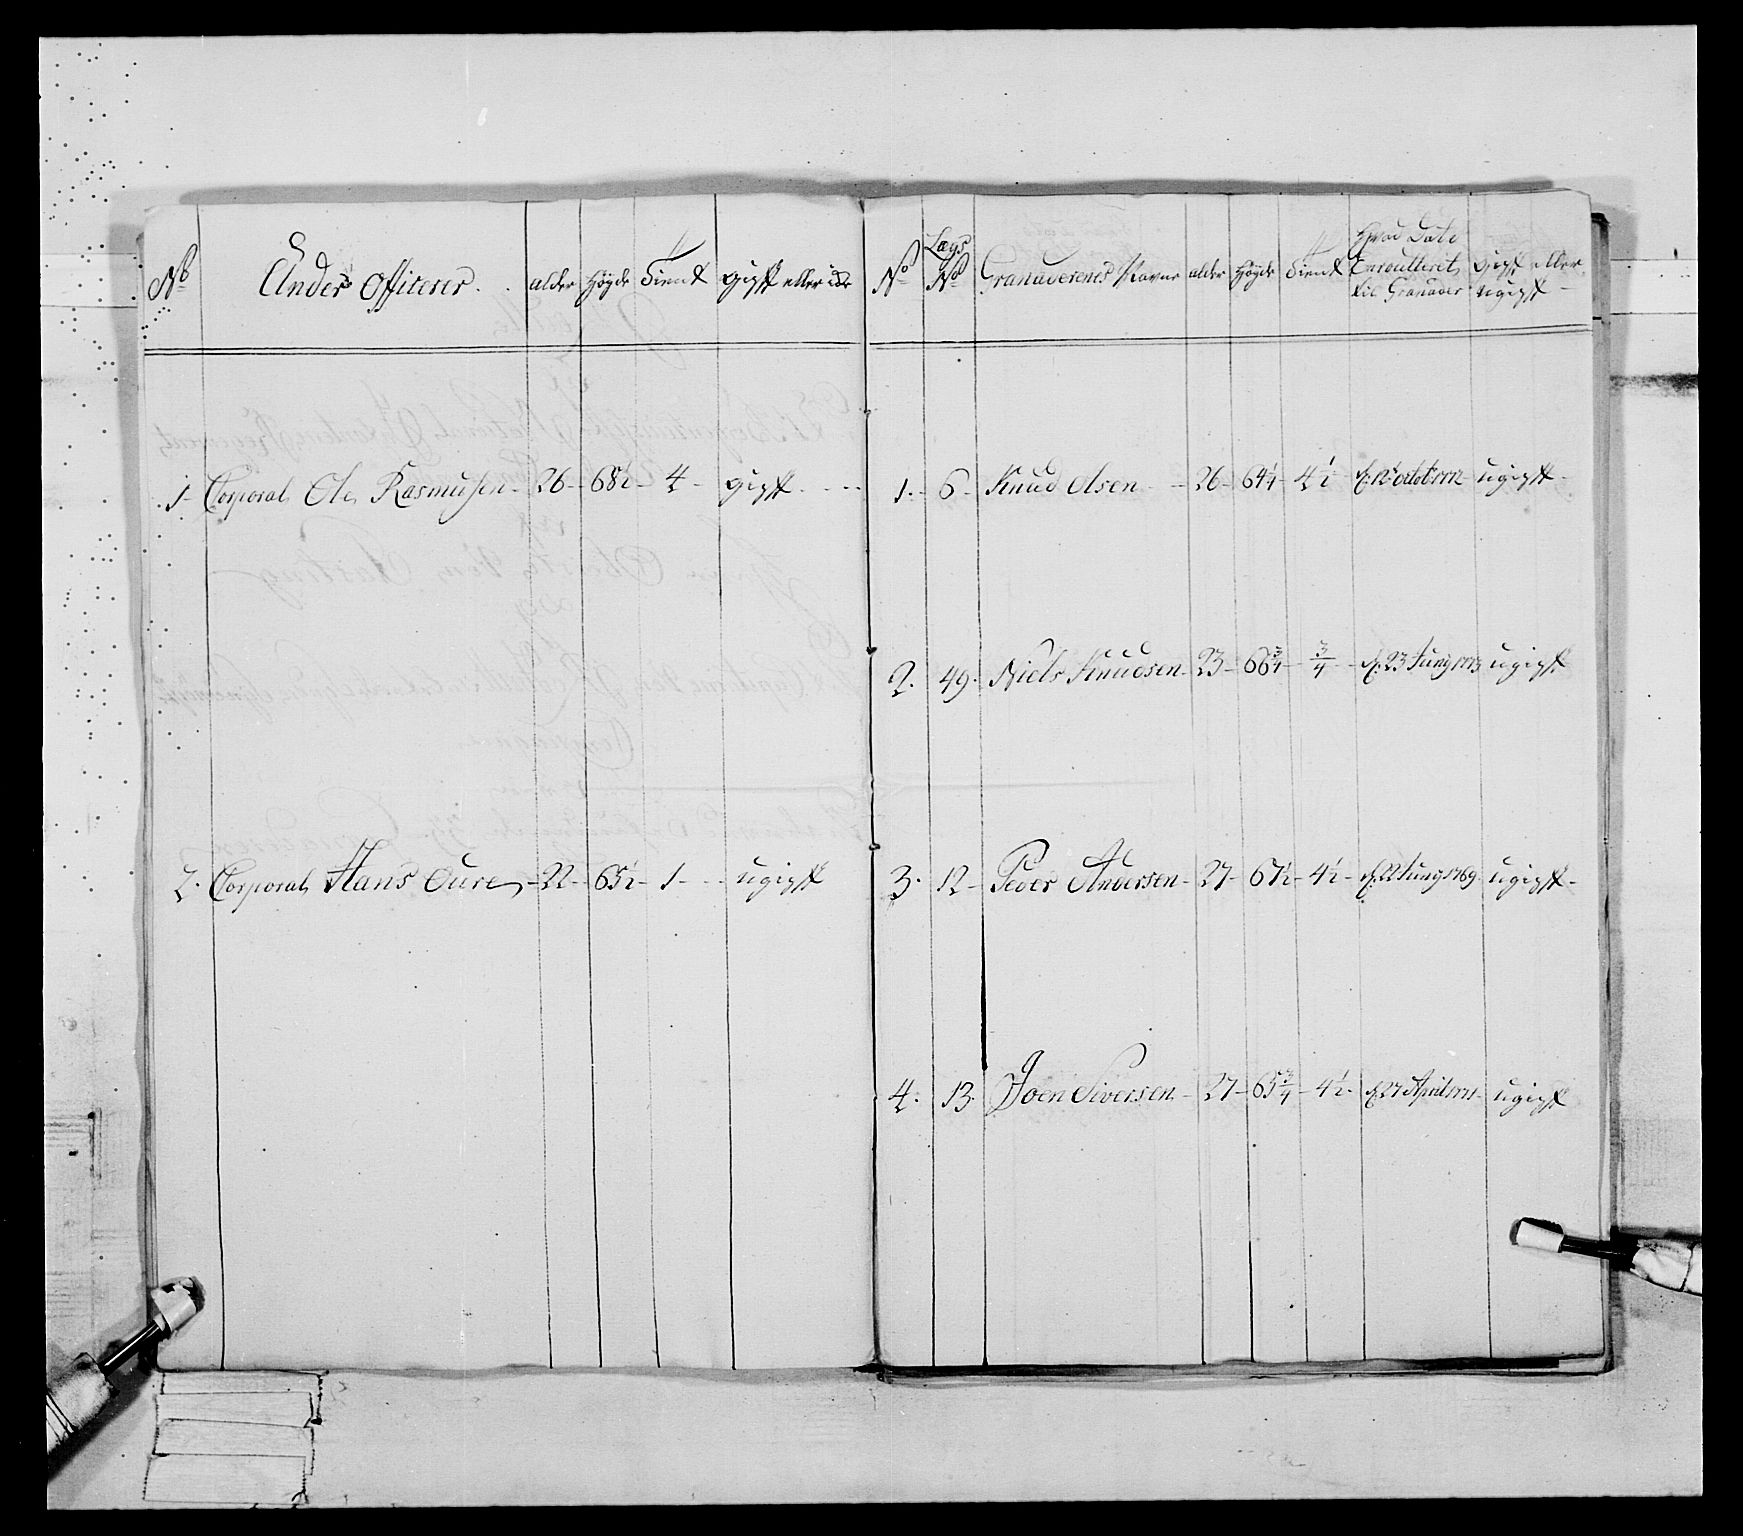 No Under Officerer. alder Høyde Tient gift eller ide
1 Corporal Ole Rasmusen 26 68½ 4 gift
2. Corporal Hans Oure 22 65½ 1 ugift
No Lægs No Granaderenes Navne alder Høyde Tient Hvad Date Enroulleret til Granader gift eller ugift
1. 6 Knud Olsen 26 64¼ 4½ d. 12 octob 1772 ugift
2. 49. Niels Knudsen 23 66¾ ¾ d. 23 Junÿ 1773 ugift
3. 12 Peder Andersen 27 67½ 4½ d. 22 Junÿ 1769 ugift
4. 13. Joen Siversen 27 65¾ 4½ d. 27 April 1771 ugift